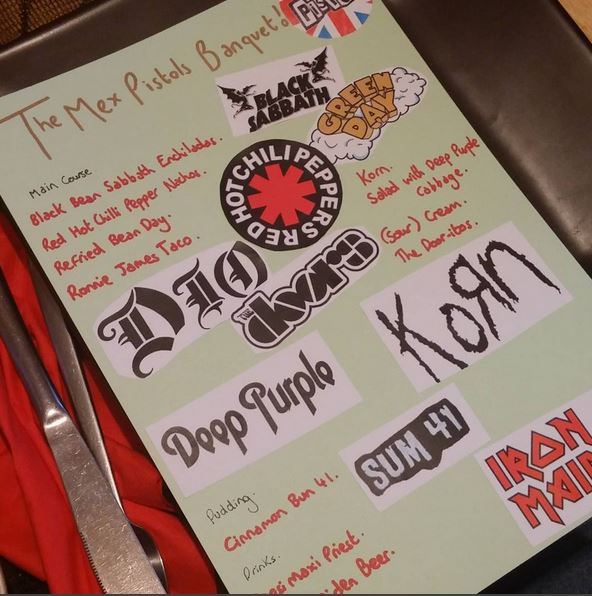 The Mex Pistols Banquet!
BLACK
SABBATH
GREEN
DAY
Main Course
Black Bean Sabbath Enchiladas.
Red Hot Chilli Pepper Nachos.
Refried Bean Day.
Ronnie James Taco.
RED HOT CHILI PEPPERS
Korn.
Salad with Deep Purple
Cabbage.
(Sour) Cream.
The Door-itos.
DIO
THE
DOORS
KoЯn
Deep Purple
SUM 41
IRON
Pudding.
Cinnamon Bun 41.
Drinks.
Priest.
Beer.